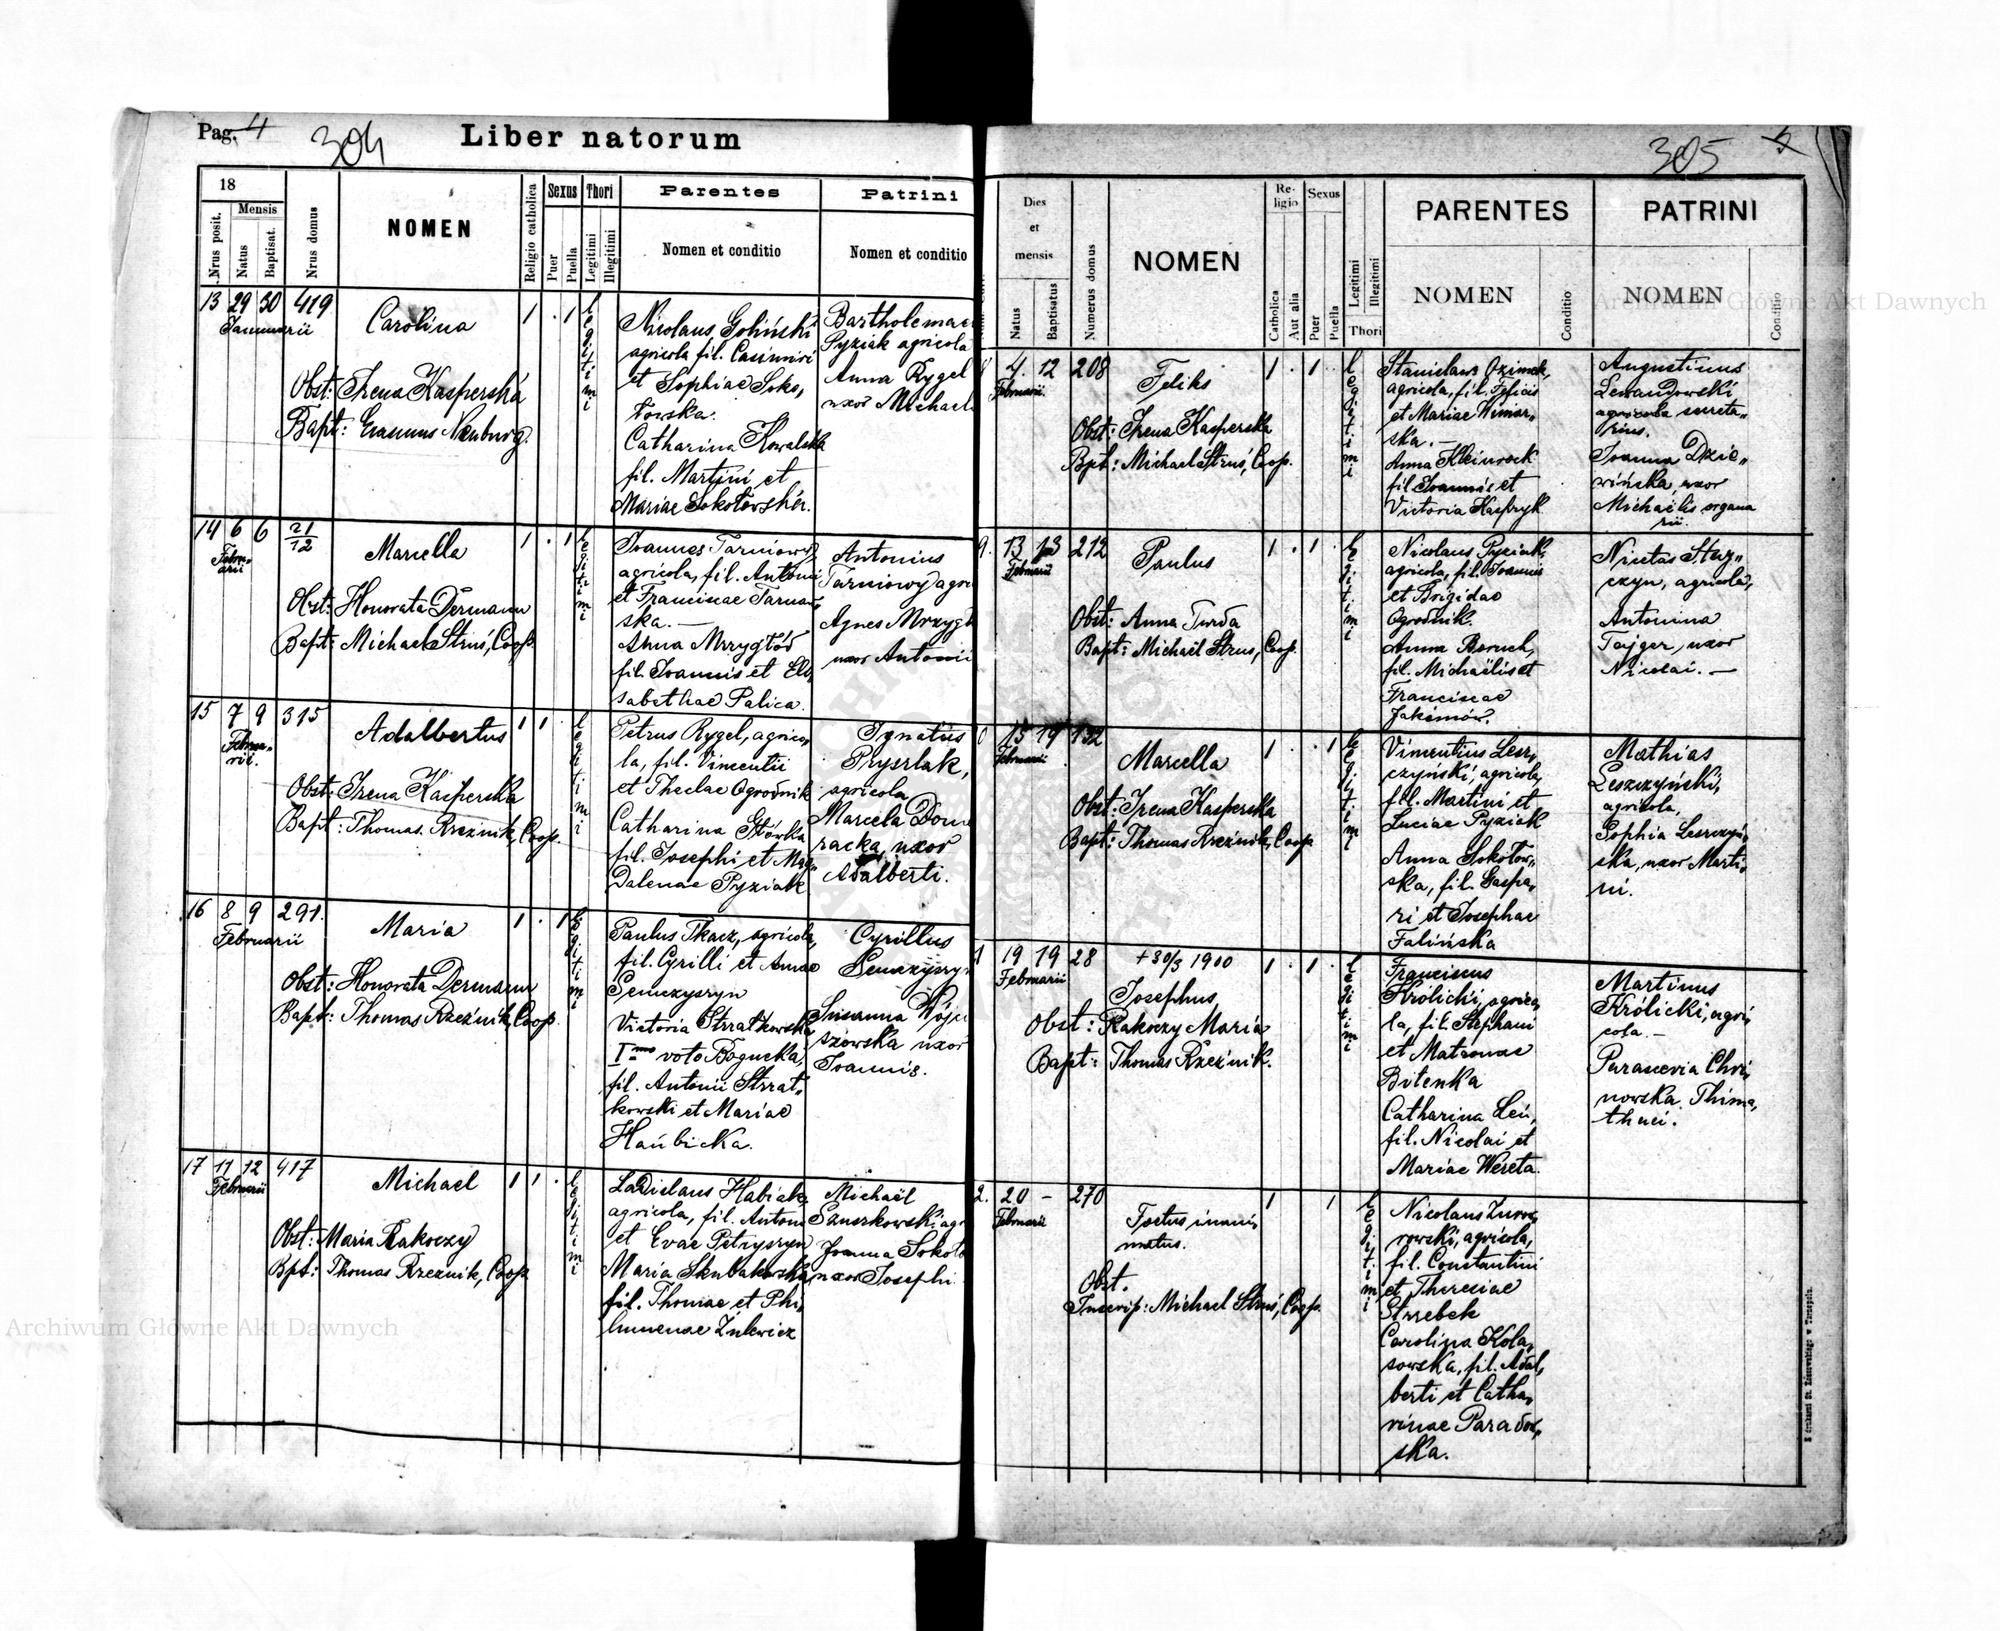 Pag. 4
304
Liber natorum
18
Nrus posit.
Mensis
Natus
Baptisat.
Nrus domus
NOMEN
Religio catholica
Sexus
Puer
Puella
Thori
Legitimi
Illegitimi
Parentes
Nomen et conditio
Patrini
Nomen et conditio
13 29 30 419
Januarii
Carolina
1 . 1
legitimi
Obst: Irena Kasperska
Bapt: Erasmus Neuburg.
Nicolaus Goliński
agricola fil. Casimiri
et Sophiae Soko,
łowska.
Catharina Kowalska
fil. Martini et
Mariae Sokołowska.
Bartholemae
Pyziak agricola
Anna Rygel
uxor Michael
14 6 6 21/12
Febru-
arii
Marcella
1 . 1
legitimi
Obst: Honorata Dermann
Bapt: Michael Struś, Coop.
Joannes Tarniowy,
agricola, fil. Antonii
et Franciscae Tarnaw,
ska. —
Anna Mrzygłód
fil. Joannis et Eli,
sabethae Palica.
Antonius
Tarniowy agri
Agnes Mrzygł
uxor Antonii
15 7 9 315
Februa-
rii.
Adalbertus
1 1 .
legitimi
Obst: Irena Kasperska
Bapt: Thomas Rzeźnik, Coop.
Petrus Rygel, agrico,
la, fil. Vincentii
et Theclae Ogrodnik
Catharina Główka
fil. Josephi et Mag,
dalenae Pyziak
Ignatius
Pryszlak,
agricola
Marcela Dom
racka, uxor
Adalberti.
16 8 9 291.
Februarii
Maria
1 . 1
legitimi
Obst: Honorata Dermann
Bapt: Thomas Rzeźnik, Coop.
Paulus Tkacz, agricola,
fil. Cyrilli et Annae
Semczyszyn
Victoria Strzałkowska
I mo voto Bogucka,
fil. Antonii Strzał,
kowski et Mariae
Hańbicka.
Cyrillus
Semczyszyn
Susanna Wój
szowska uxor
Joannis.
17 11 12 417
Februarii
Michael
1 1 .
legitimi
Obst: Maria Rakoczy
Bpt: Thomas Rzeźnik, Coop.
Ladislaus Habiak,
agricola, fil. Antoni
et Evae Petryszyn
Maria Skubakowska,
fil. Thomae et Phi,
lumenae Zulewicz
Michaël
Szuszkowski agr
Joanna Sokoło
uxor Josephi
305
5
Dies
et
mensis
Natus
Baptisatus
Numerus domus
NOMEN
Re-
ligio
Catholica
Aut alia
Sexus
Puer
Puella
Legitimi
Illegitimi
Thori
PARENTES
NOMEN
Conditio
PATRINI
NOMEN
Conditio
8 4. 12 208
Februarii.
Feliks
1 . 1 .
legitimi
Obst: Irena Kasperska
Bpt: Michael Struś, Coop.
Stanislaus Ozimek,
agricola, fil. Felicis
et Mariae Winiar,
ska. —
Anna Kleinrock
fil Joannis et
Victoria Kasfryk.
Augustinus
Lewandowski
agricola secreta,
rius.
Joanna Dzie,
wińska, uxor
Michaëlis organa
rii
9. 13 13 212
Februarii
Paulus
1 . 1
legitimi
Obst: Anna Turda
Bapt: Michaël Strus, Coop.
Nicolaus Pyziak,
agricola, fil. Joannis
et Brigidae
Ogrodnik.
Anna Boruch,
fil. Michaëlis et
Franciscae
Jakimów.
Nicetas Stay,
czyn, agricola,
Antonina
Tajger, uxor
Nicolai. —
0 15 19 132
Februarii
Marcella
1 . 1
legitimi
Obst: Irena Kasperska
Bapt: Thomas Rzeźnik, Coop
Vincentius Lesz,
czyński, agricola,
fil. Martini et
Luciae Pyziak
Anna Sokołow,
ska, fil. Gaspa,
ri et Josephae
Falińska
Mathias
Leszczyński,
agricola,
Sophia Leszczyń,
ska, uxor Marti,
ni.
1 19 19 28
Februarii
+ 30/3 1900
Josephus,
1 . 1 .
legitimi
Obst: Rakoczy Maria
Bapt: Thomas Rzeźnik.
Franciscus
Królicki, agrico,
la, fil. Stephani
et Matronae
Bitenka
Catharina Leń,
fil. Nicolai et
Mariae Wereta.
Martinus
Królicki, agri,
cola. —
Parascevia Chri,
nowska. Thimo,
thaei.
2. 20 — 270
Februarii
Foetus inani,
matus.
1 1
legitimi
Obst.
Inscrip: Michael Struś, Coop.
Nicolaus Żuro,
rowski, agricola,
fil. Constantini
et Theresiae
Strzebek
Carolina Kola,
sowska, fil. Adal,
berti et Catha,
rinae Paradow,
ska.
Archiwum Główne Akt Dawnych
Archiwum Główne Akt Dawnych